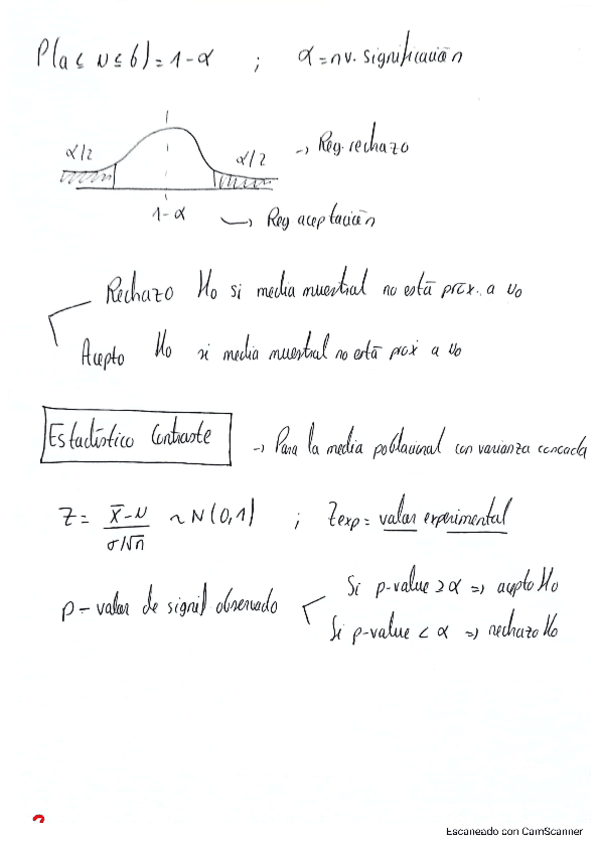 P(a ≤ μ ≤ b) = 1-α ; α = nv. significación
α/2 α/2 → Reg. rechazo
1-α → Reg aceptación
Rechazo H₀ si media muestral no está próx. a μ₀
Acepto H₀ si media muestral no está proxi a μ₀
Estadístico Contraste → Para la media poblacional con varianza conocida
Z = x̄-μ / σ/√n ~ N(0,1) ; Zexp = valor experimental
p-valor de signif observado
Si p-value ≥ α => acepto H₀
Si p-value < α => rechazo H₀
Escaneado con CamScanner